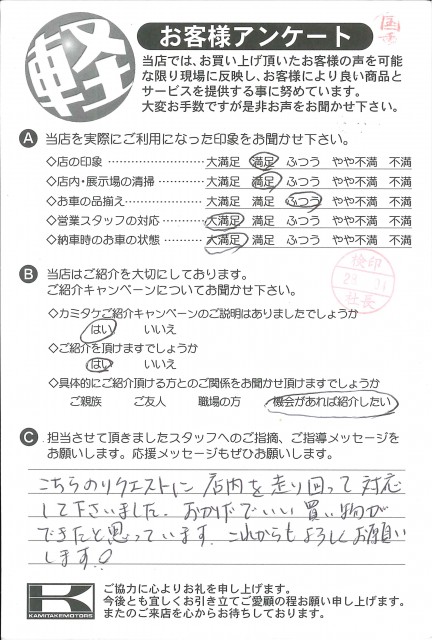 軽
お客様アンケート
当店では、お買い上げ頂いたお客様の声を可能
な限り現場に反映し、お客様により良い商品と
サービスを提供する事に努めています。
大変お手数ですが是非お声をお聞かせ下さい。
A 当店を実際にご利用になった印象をお聞かせ下さい。
◇店の印象 ………………… 大満足 満足 ふつう やや不満 不満
◇店内・展示場の清掃 ………… 大満足 満足 ふつう やや不満 不満
◇お車の品揃え ……………… 大満足 満足 ふつう やや不満 不満
◇営業スタッフの対応 ………… 大満足 満足 ふつう やや不満 不満
◇納車時のお車の状態 ………… 大満足 満足 ふつう やや不満 不満
B 当店はご紹介を大切にしております。
ご紹介キャンペーンについてお聞かせ下さい。
検印
社長
◇カミタケご紹介キャンペーンのご説明はありましたでしょうか
はい いいえ
◇ご紹介を頂けますでしょうか
はい いいえ
◇具体的にご紹介頂ける方とのご関係をお聞かせ頂けますでしょうか
ご親族 ご友人 職場の方 機会があれば紹介したい
C 担当させて頂きましたスタッフへのご指摘、ご指導メッセージを
お願いします。応援メッセージもぜひお願いします。
こちらのリクエストに店内を走り回って対応
して下さいました。おかげでいい買い物が
できたと思っています。これからもよろしくお願い
します!
K
KAMITAKEMOTORS
ご協力に心よりお礼を申し上げます。
今後とも宜しくお引き立てご愛顧の程お願い申し上げます。
またのご来店を心からお待ちしております。